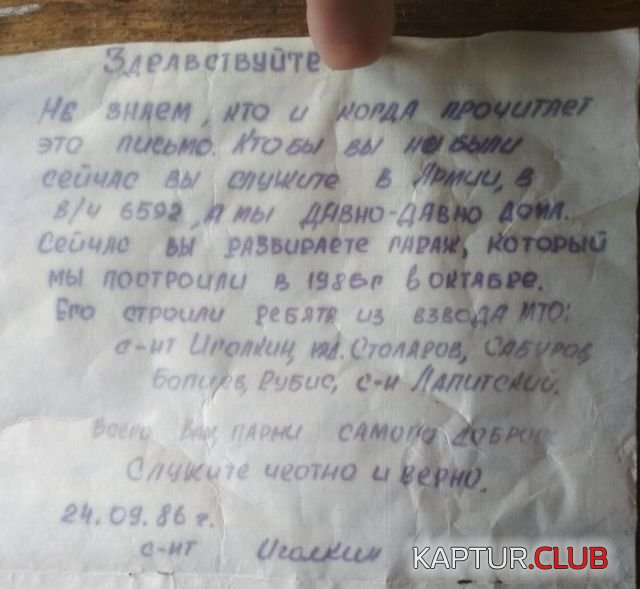 Здравствуйте
Не знаем, кто и когда прочитает
это письмо. Кто бы вы не были
сейчас вы служите в Армии, в
в/ч 6592, а мы давно-давно дома.
Сейчас вы разбираете гараж, который
мы построили в 1986г в октябре.
Его строили ребята из взвода МТО:
с-нт Иголкин, мл. Столаров, Сабуров,
Рубис, с-н Лапитский.
Всего Вам, парни самого доброго
Служите честно и верно.
24.09.86 г.
с-нт Иголкин
KAPTUR.CLUB